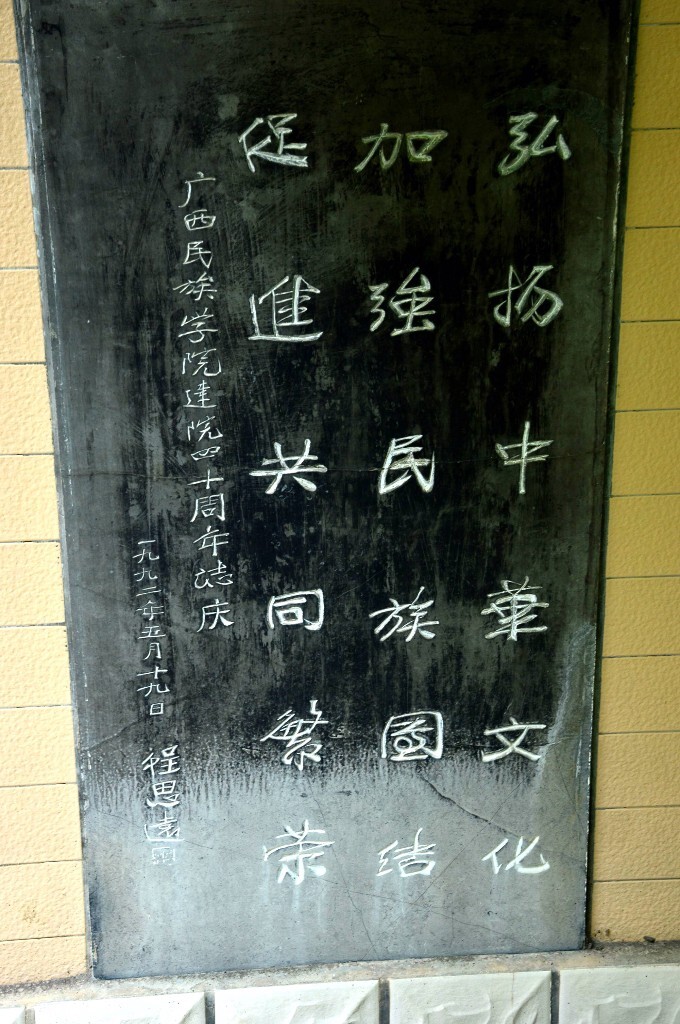 弘扬中華文化
加強民族國结
促進共同繁荣
广西民族学院建院四十周年誌庆
一九九二年五月十九日 程思遠